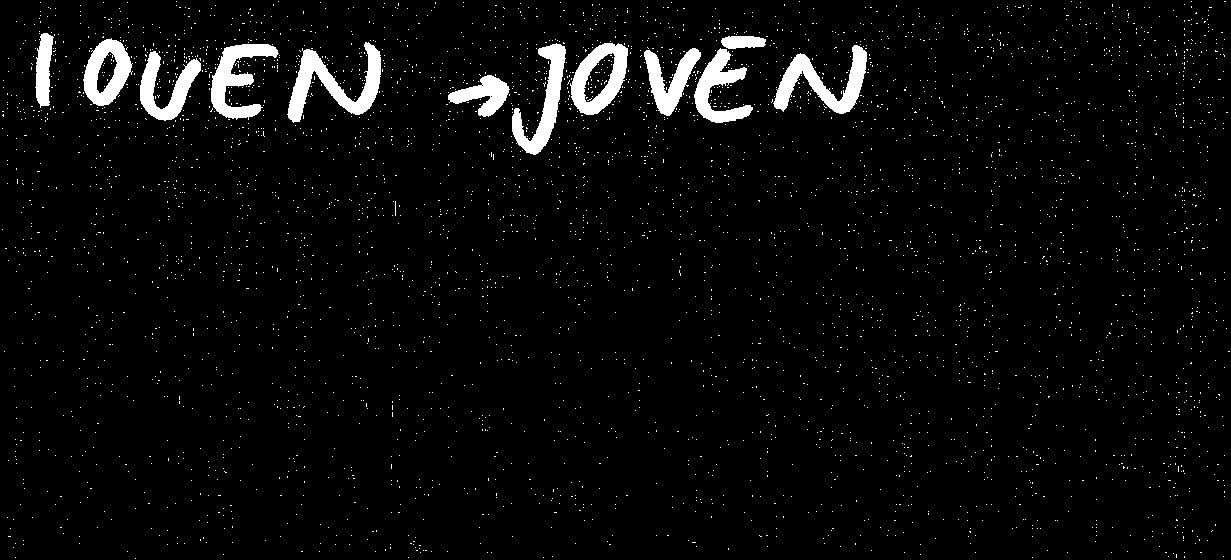 IOUEN → JOVEN